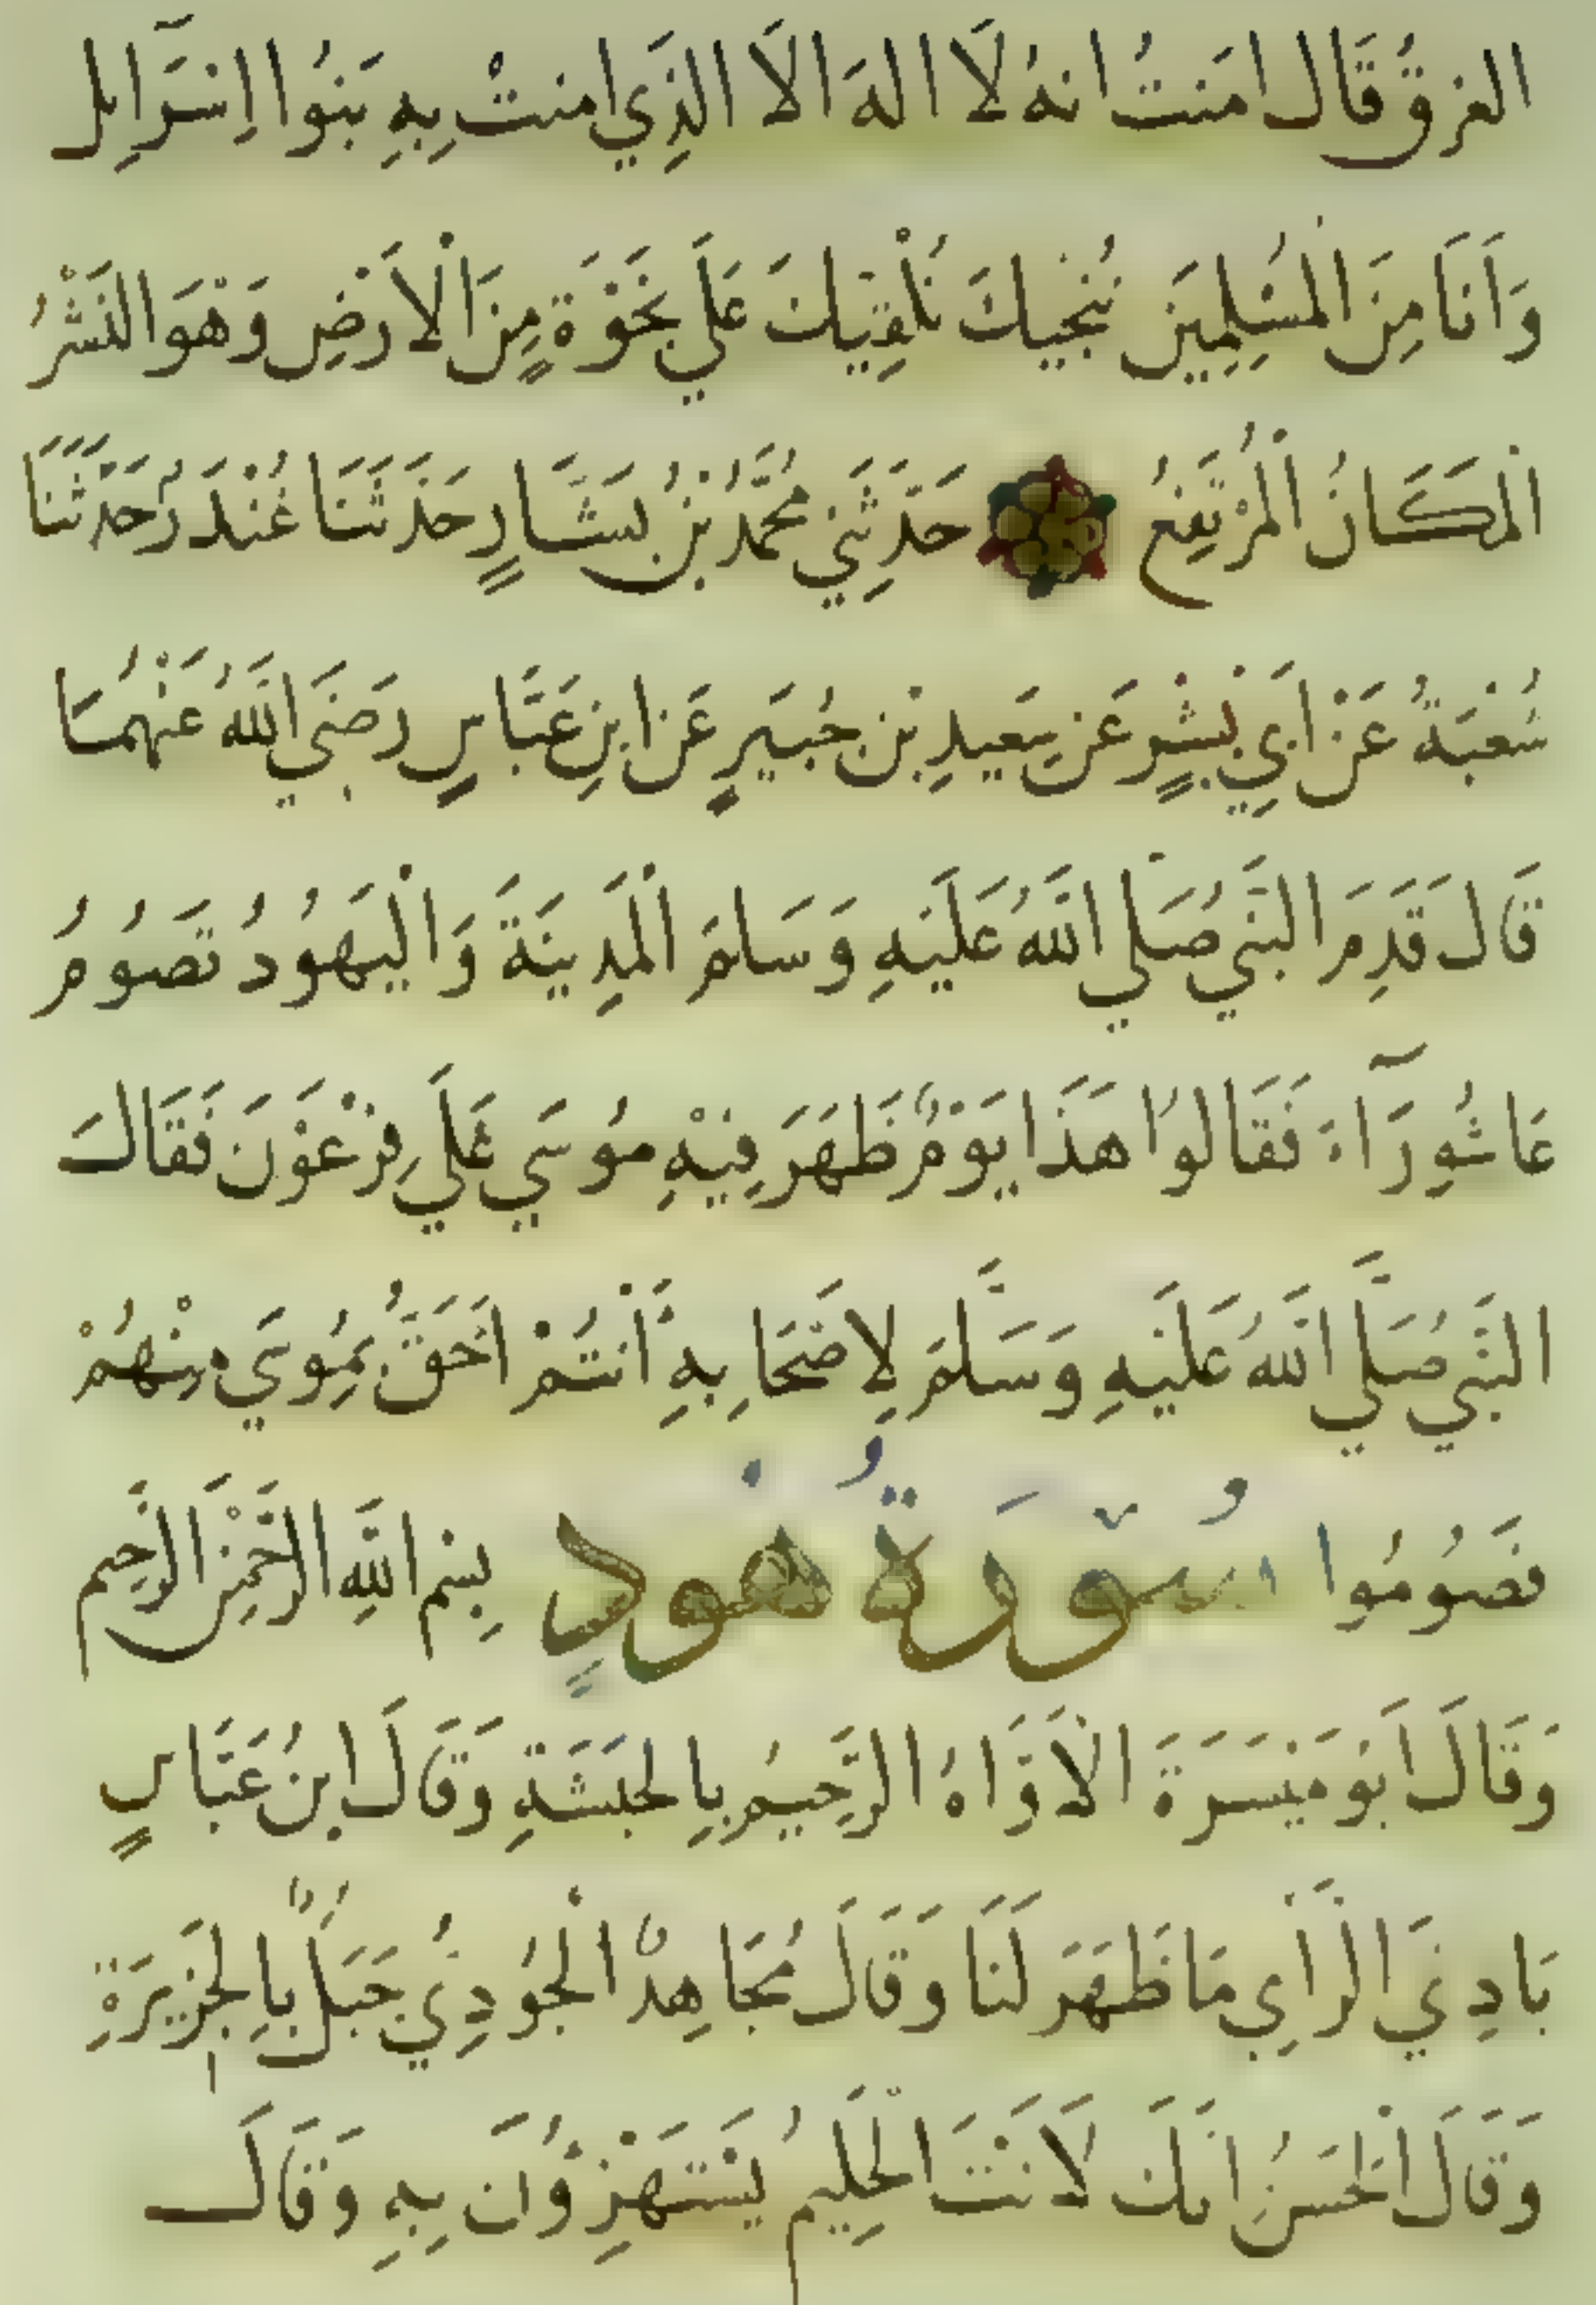 الغرقُ قَال امَنتُ انهُ لَا الهَ الَا الذِي امنتْ بِهِ بَنُوا اِسْرَآئِل
وَاَنَا مِنَ الْمسْلِمِيَن نُنَجِيكَ نُلْقِيكَ عَلَي نَجْوَةٍ مِنَ الْاَرْضِ وَهْوَ النَشْرُ
اْلمكَانُ الْمُرْتَفِعُ حَدّثَنِي مُحَمَّدُ بْنُ بَشَّارٍ حَدَثَنَا غُنْدَرُ حَدَثَنَا
شُعْبَةُ عَنْ اَبِي بِشْرٍ عَن سَعِيدِ بْن جُبَيرٍ عَن ابنِ عَبَّاسٍ رَضَيِ اللَّهُ عَنْهُمَا
قَالَ قَدِمَ النَّبي صُلَي اللَّهُ عَلَيْهِ وَسَلمَ الْمَدِينَةَ وَالْيَهُودُ تَصُومُ
عَاشُورَآءَ فَقَالوُا هَذَا يَوْمٌ ظَهَرَ فِيْهِ مُوسَي عَلَي فِرْعَوْنَ فَقَالَ
النَّبي صُلَّي اللَّهُ عَلَيهِ وَسَلَّمَ لِاصْحَابِهِ أَنْتُمْ اَحَقُّ بِمُوسَي مِنْهُمْ
فَصُومُوا سُوۤرَةُ هُودٍ بِسْمِ اللَّهِ الرَّحْمِنَ الرَّحِيم
وَقَالَ اَبُو مَيْسَرَةَ الْاَوَّاهُ الرَّحِيمُ بِالحبَشَةِ وَقَالَ ابنُ عَبَّاسٍ
بَادِئَ الرَّأيِ مَا ظَهَرَ لَنَا وَقَالَ مُجَاهِدٌ الْجُودِيُّ جَبَلٌ بِالْجَزِيرَةِ
وَقَالَ اْلحَسَنُ اِنكَ لَانْتَ اْلحَلِيمُ يَسْتَهْزِؤُنَ بِهِ وَقَالَ